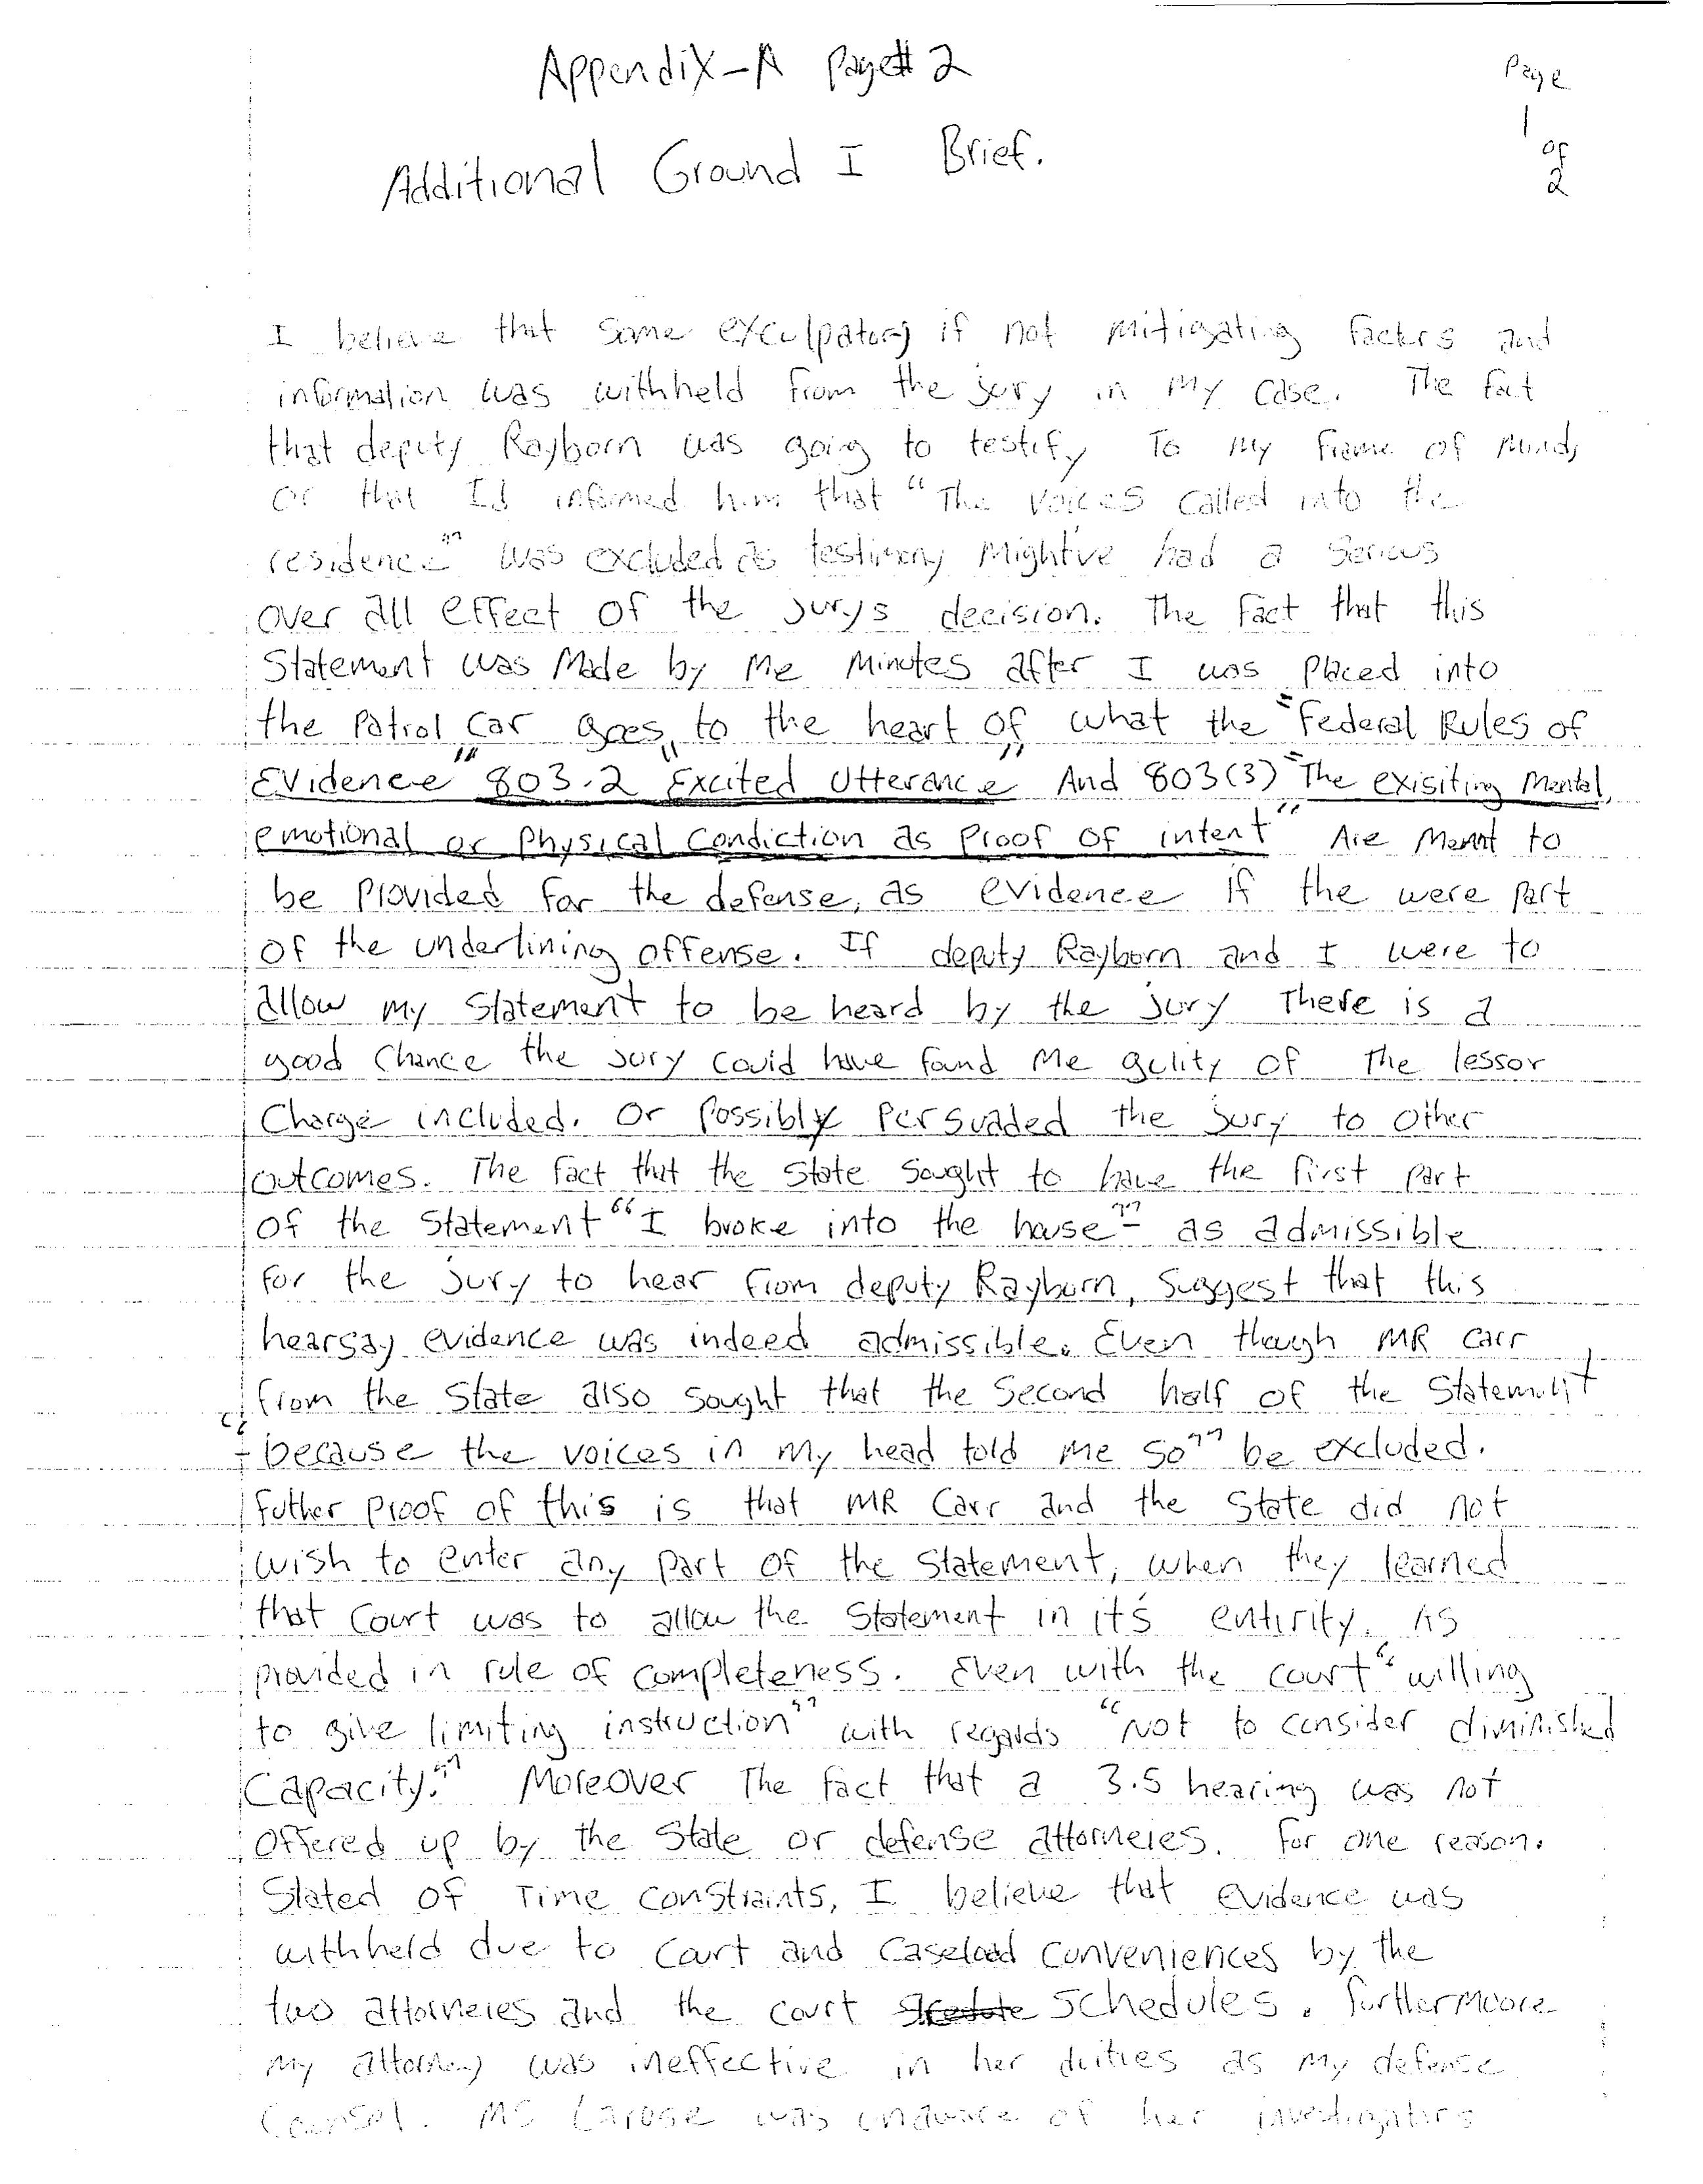 Appendix-A Page# 2
Page
1
of
2
Additional Ground I Brief.
I believe that some exculpatory if not mitigating factors and
information was withheld from the jury in my case. The fact
that deputy Rayborn was going to testify To my frame of mind,
or that I'd informed him that "The voices called into the
residence" was excluded as testimony might've had a serious
over all effect of the jurys decision. The fact that this
Statement was Made by Me Minutes after I was placed into
the patrol car goes to the heart of what the "Federal Rules of
Evidence" 803.2 "Excited Utterance" And 803(3) "The exisiting Mental,
emotional or physical Condiction as proof of intent" Are Meant to
be provided for the defense, as evidence if the were part
of the underlining offense. If deputy Rayborn and I were to
allow my Statement to be heard by the jury There is a
good chance the jury could have found Me gulity of The lessor
Charge included. Or possibly persuaded the jury to other
outcomes. The fact that the State sought to have the first part
of the Statement "I broke into the house"- as admissible
for the jury to hear from deputy Rayburn, suggest that this
hearsay evidence was indeed admissible. Even though MR Carr
from the State also sought that the second half of the Statement
"- because the voices in my head told me so" be excluded.
Futher proof of this is that MR Carr and the State did not
wish to enter any part of the Statement, when they learned
that Court was to allow the Statement in it's entirity. As
provided in rule of completeness. Even with the court "willing
to give limiting instruction" with regards "Not to consider diminished
Capacity." Moreover The fact that a 3.5 hearing was not
offered up by the State or defense attorneies. For one reason.
Stated of Time constraints, I believe that evidence was
withheld due to Court and Caseload conveniences by the
two attorneies and the court schedules. Furthermoore
my attorney was ineffective in her duties as my defense
Counsel. MS Larose was unaware of her investigators